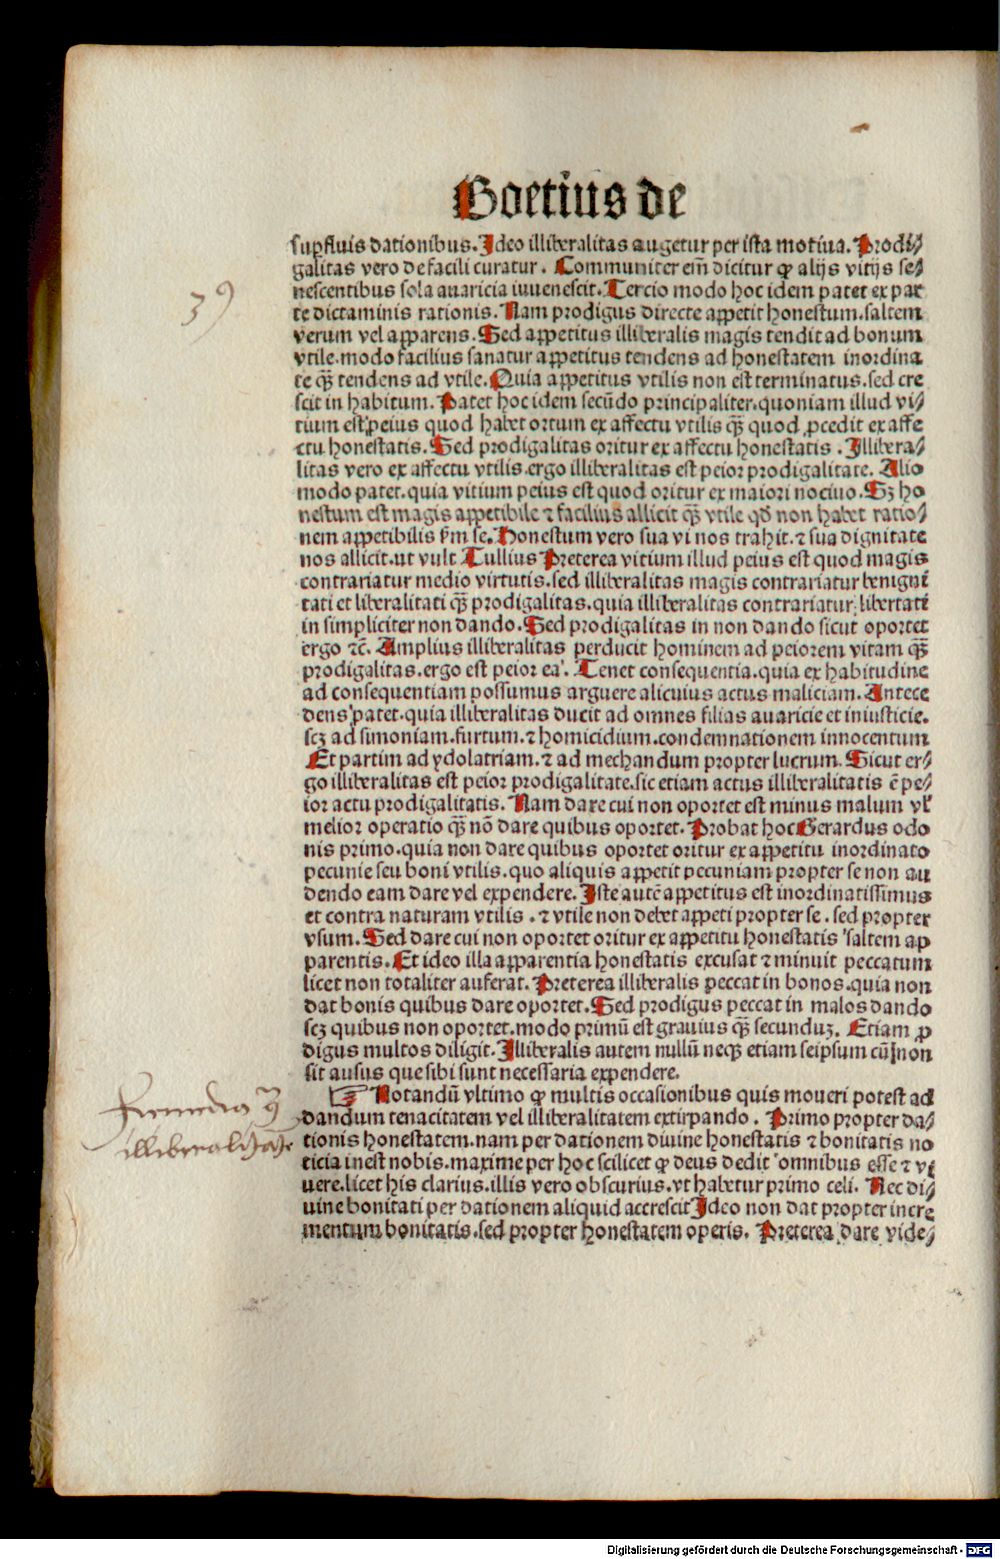 Boetius de
suꝑfluis dationibus. Ideo illiberalitas augetur per ista motiua. Prodi⸗
galitas vero de facili curatur. Communiter em̄ dicitur ꝙ alijs vitijs se⸗
nescentibus sola auaricia iuuenescit. Tercio modo hoc idem patet ex par
te dictaminis rationis. Nam prodigus directe appetit honestum. saltem
verum vel apparens. Sed appetitus illiberalis magis tendit ad bonum
vtile. modo facilius sanatur appetitus tendens ad honestatem inordina
te qȝ̄ tendens ad vtile. Quia appetitus vtilis non est terminatus. sed cre
scit in habitum. Patet hoc idem secūdo principaliter. quoniam illud vi⸗
tium est peius quod habet ortum ex affectu vtilis qȝ̄ quod ꝓcedit ex affe
ctu honestatis. Sed prodigalitas oritur ex affectu honestatis. Illibera⸗
litas vero ex affectu vtilis. ergo illiberalitas est peior prodigalitate. Alio
modo patet. quia vitium peius est quod oritur ex maiori nociuo. Sȝ ho
nestum est magis appetibile ⁊ facilius allicit qȝ̄ vtile qđ non habet ratio⸗
nem appetibilis ẜm se. Honestum vero sua vi nos trahit. ⁊ sua dignitate
nos allicit. ut vult Tullius Preterea vitium illud peius est quod magis
contrariatur medio virtutis. sed illiberalitas magis contrariatur benigni
tati et liberalitati qȝ̄ prodigalitas. quia illiberalitas contrariatur libertati
in simpliciter non dando. Sed prodigalitas in non dando sicut oportet
ergo ⁊c̄. Amplius illiberalitas perducit hominem ad peiorem vitam qȝ̄
prodigalitas. ergo est peior ea. Tenet consequentia. quia ex habitudine
ad consequentiam possumus arguere alicuius actus maliciam. Antece
dens patet. quia illiberalitas ducit ad omnes filias auaricie et iniusticie.
scȝ ad simoniam. furtum. ⁊ homicidium. condemnationem innocentum
Et partim ad ydolatriam. ⁊ ad mechandum propter lucrum. Sicut er⸗
go illiberalitas est peior prodigalitate. sic etiam actus illiberalitatis ē pe⸗
ior actu prodigalitatis. Nam dare cui non oportet est minus malum vł
melior operatio qȝ̄ nō dare quibus oportet. Probat hoc Gerardus odo
nis primo. quia non dare quibus oportet oritur ex appetitu inordinato
pecunie seu boni vtilis. quo aliquis appetit pecuniam propter se non au
dendo eam dare vel expendere. Iste autē appetitus est inordinatissimus
et contra naturam vtilis. ⁊ vtile non debet appeti propter se. sed propter
vsum. Sed dare cui non oportet oritur ex appetitu honestatis saltem ap
parentis. Et ideo illa apparentia honestatis excusat ⁊ minuit peccatum
licet non totaliter auferat. Preterea illiberalis peccat in bonos. quia non
dat bonis quibus dare oportet. Sed prodigus peccat in malos dando
scȝ quibus non oportet. modo primū est grauius qȝ̄ secunduȝ. Etiam ꝓ
digus multos diligit. Illiberalis autem nullū neqȝ etiam seipsum cū non
sit ausus que sibi sunt necessaria expendere.
☞ Notandū vltimo ꝙ multis occasionibus quis moueri potest ad
dandum tenacitatem vel illiberalitatem extirpando. Primo propter da⸗
tionis honestatem. nam per dationem diuine honestatis ⁊ bonitatis no
ticia inest nobis. maxime per hoc scilicet ꝙ deus dedit omnibus esse ⁊ vi
uere. licet his clarius. illis vero obscurius. vt habetur primo celi. Nec di⸗
uine bonitati per dationem aliquid accrescit Ideo non dat propter incre
mentum bonitatis. sed propter honestatem operis. Preterea dare vide⸗
39
Remedia
illiberalitate
Digitalisierung gefördert durch die Deutsche Forschungsgemeinschaft - DFG